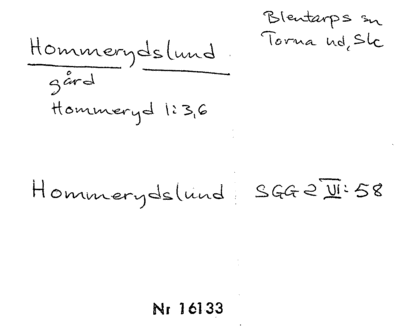 Blentarps sn
Torna hd, Sk
Hommerydslund
gård
Hommeryd 1:3,6
Hommerydslund SGG 2 VI: 58
Nr 16133